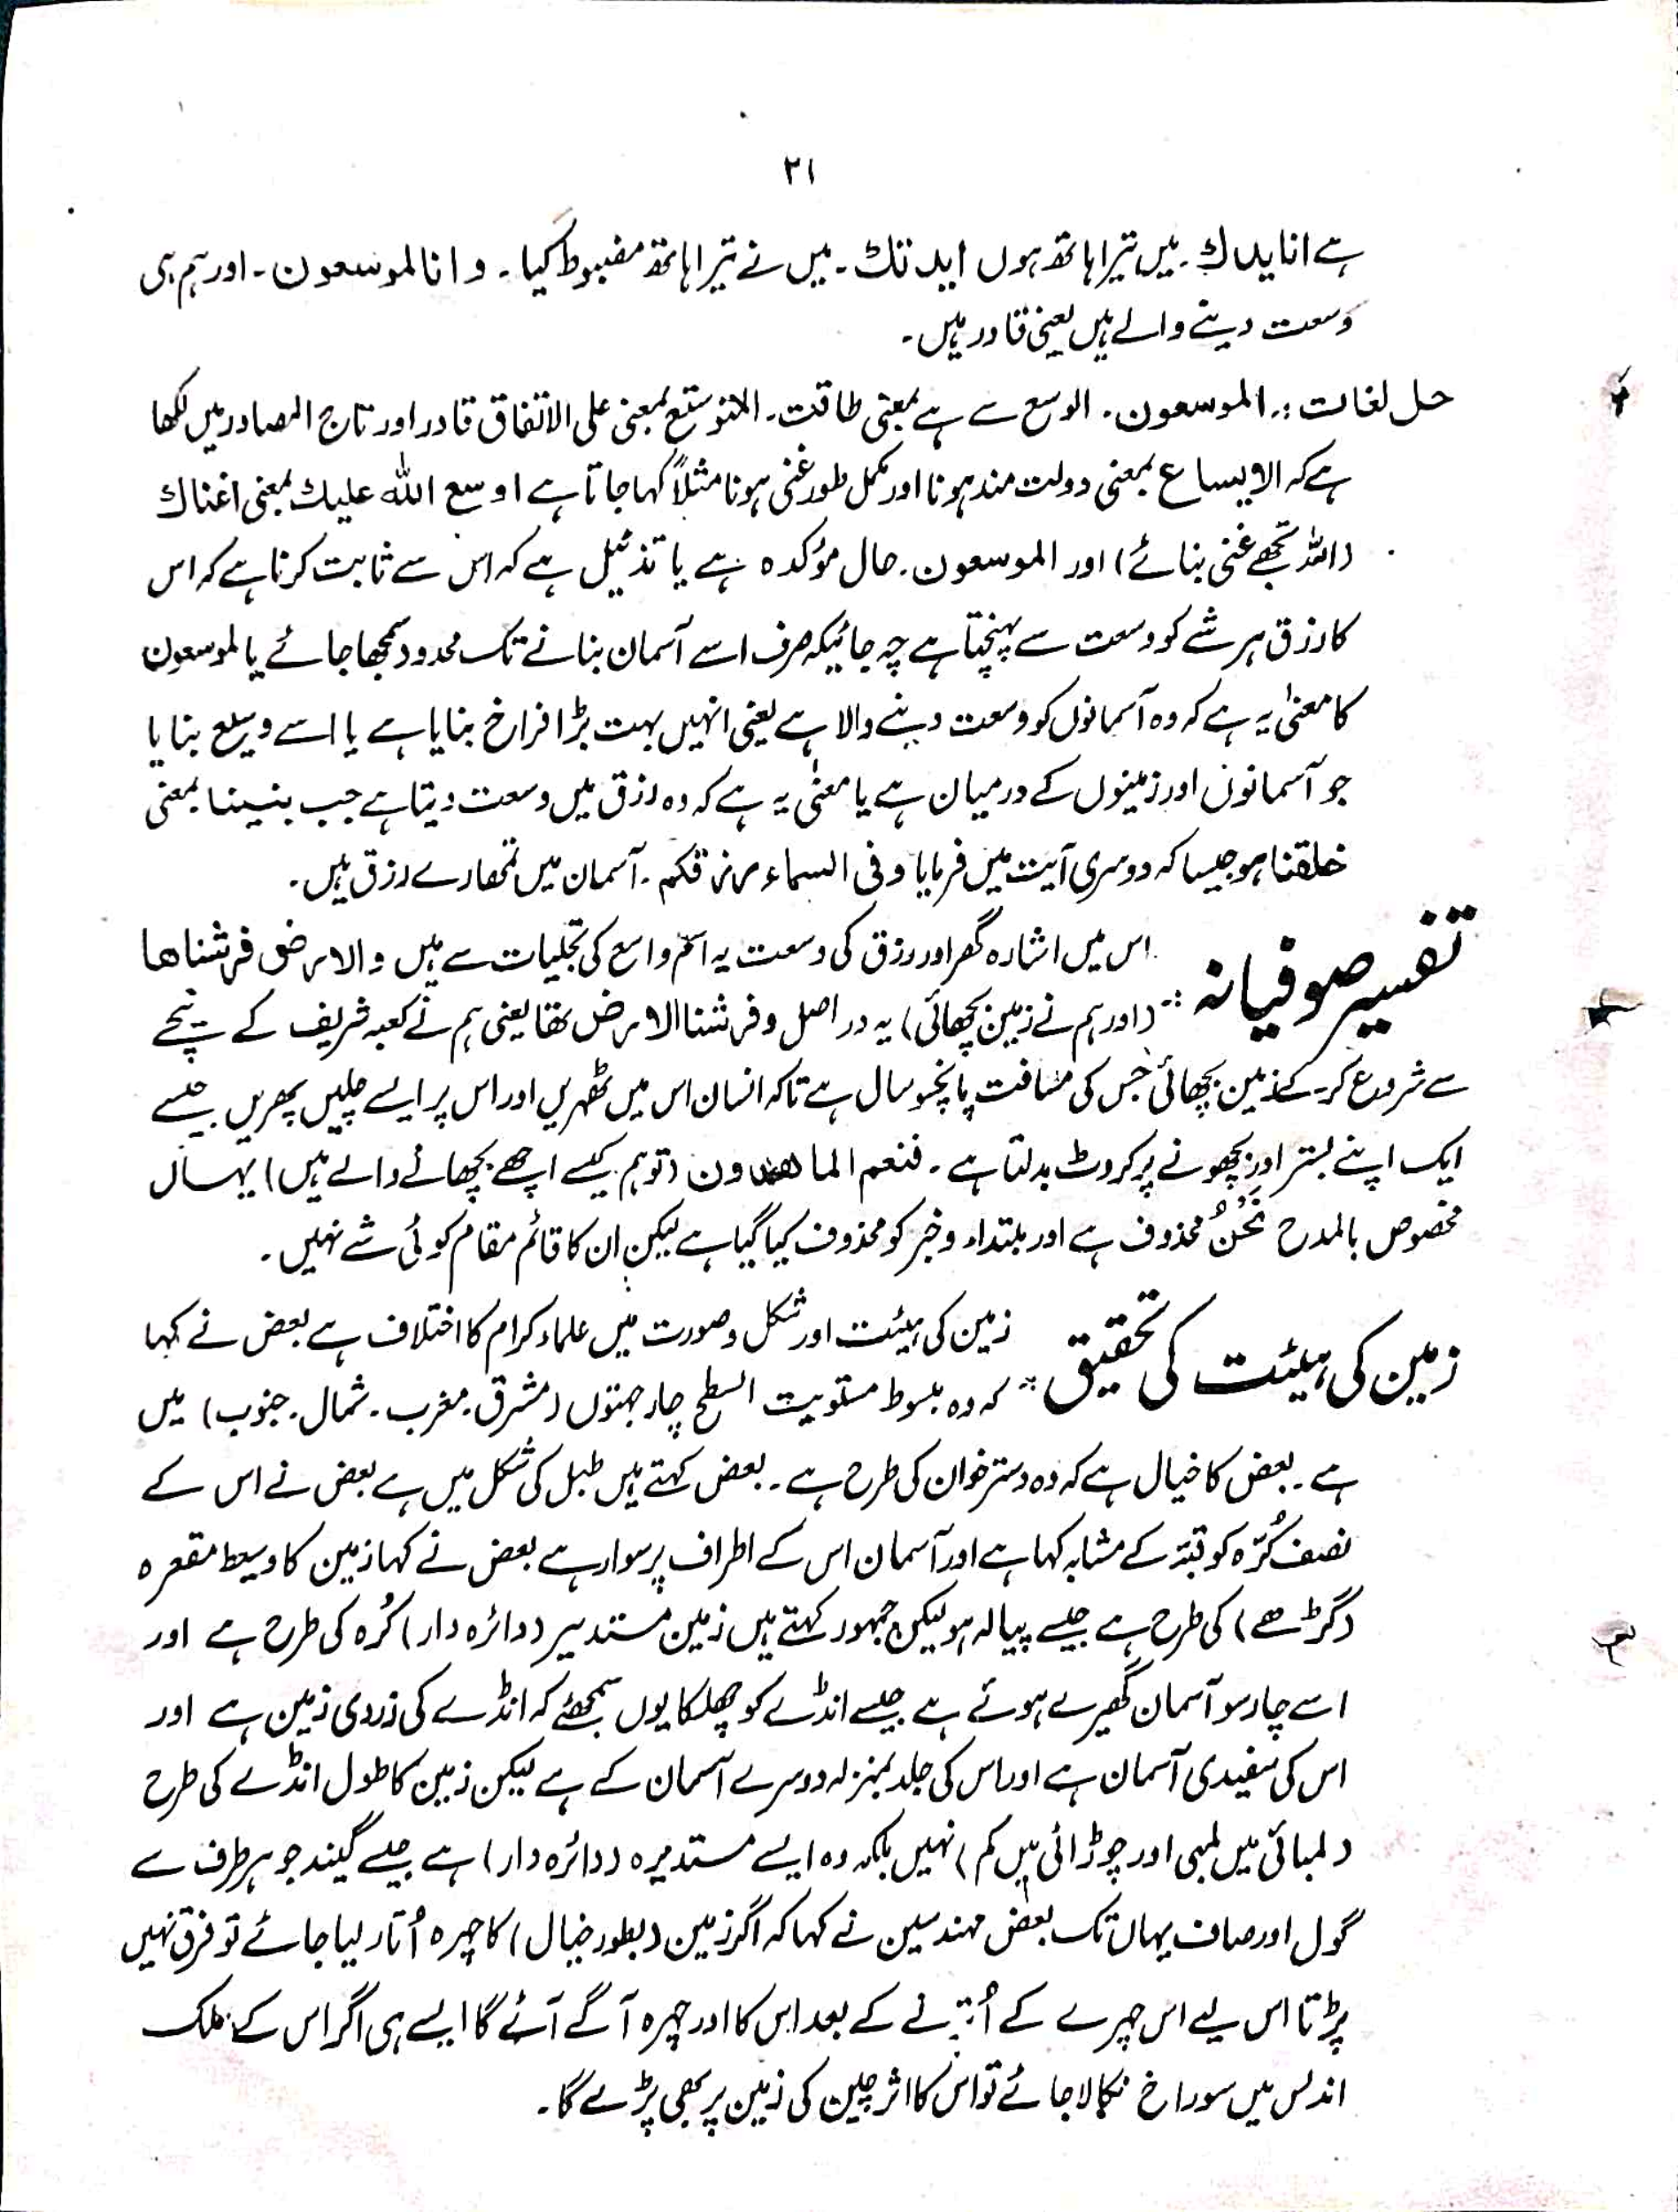 ۲۱
ہے انا یدك۔ میں تیرا ہاتھ ہوں اید تك۔ میں نے تیرا ہاتھ مضبوط کیا۔ و انا لموسعون۔ اور ہم ہی
وسعت دینے والے ہیں یعنی قادر ہیں۔
حل لغات :۔ الموسعون۔ الوسع سے ہے بمعنی طاقت۔ التوسیع بمعنی علی الاتفاق قادر اور تاج المصادر میں لکھا
ہے کہ الایساع بمعنی دولت مند ہونا اور مکمل طور غنی ہونا مثلاً کہا جاتا ہے اوسع اللّٰہ علیك بمعنی اغناك
(اللہ تجھے غنی بنائے) اور الموسعون۔ حال مؤکدہ ہے یا تذئیل ہے کہ اس سے ثابت کرنا ہے کہ اس
کا رزق ہر شے کو وسعت سے پہنچتا ہے چہ جائیکہ صرف اسے آسمان بنانے تک محدود سمجھا جائے یا لموسعون
کا معنیٰ یہ ہے کہ وہ آسمانوں کو وسعت دینے والا ہے یعنی انہیں بہت بڑا فراخ بنایا ہے یا اسے وسیع بنایا
جو آسمانوں اور زمینوں کے درمیان ہے یا معنیٰ یہ ہے کہ وہ رزق میں وسعت دیتا ہے جب بنینا بمعنی
خلقنا ہو جیسا کہ دوسری آیت میں فرمایا وفی السماء رزقکم۔ آسمان میں تمھارے رزق ہیں۔
تفسیر صوفیانہ :۔ اس میں اشارہ گھر اور رزق کی وسعت یہ اسم واسع کی تجلیات سے ہیں والارض فرشناھا
(اور ہم نے زمین بچھائی) یہ دراصل وفرشنا الارض تھا یعنی ہم نے کعبہ شریف کے نیچے
سے شروع کر کے زمین بچھائی جس کی مسافت پانچسو سال ہے تاکہ انسان اس میں ٹھہریں اور اس پر ایسے چلیں پھریں جیسے
ایک اپنے بستر اور بچھونے پر کروٹ بدلتا ہے۔ فنعم الماھدون (تو ہم کیسے اچھے بچھانے والے ہیں) یہاں
مخصوص بالمدح نَحْنُ محذوف ہے اور مبتداء و خبر کو محذوف کیا گیا ہے لیکن ان کا قائم مقام کوئی شے نہیں۔
زمین کی ہیئت کی تحقیق :۔ زمین کی ہیئت اور شکل و صورت میں علماء کرام کا اختلاف ہے بعض نے کہا
کہ وہ مبسوط مستویت السطح چار جہتوں (مشرق۔ مغرب۔ شمال۔ جنوب) میں
ہے۔ بعض کا خیال ہے کہ وہ دسترخوان کی طرح ہے۔ بعض کہتے ہیں طبل کی شکل میں ہے بعض نے اس کے
نصف کُرّہ کو قبّہ کے مشابہ کہا ہے اور آسمان اس کے اطراف پر سوار ہے بعض نے کہا زمین کا وسط مقعرہ
(گڑھے) کی طرح ہے جیسے پیالہ ہو لیکن جمہور کہتے ہیں زمین مستدیر (دائرہ دار) کُرہ کی طرح ہے اور
اسے چار سو آسمان گھیرے ہوئے ہے جیسے انڈے کو چھلکا یوں سمجھئے کہ انڈے کی زردی زمین ہے اور
اس کی سفیدی آسمان ہے اور اس کی جلد بمنزلہ دوسرے آسمان کے ہے لیکن زمین کا طول انڈے کی طرح
(لمبائی میں لمبی اور چوڑائی میں کم) نہیں بلکہ وہ ایسے مستدیرہ (دائرہ دار) ہے جیسے گیند جو ہر طرف سے
گول اور صاف یہاں تک بعض مہندسین نے کہا کہ اگر زمین (بطور خیال) کا چہرہ اُتار لیا جائے تو فرق نہیں
پڑتا اس لیے اس چہرے کے اُترنے کے بعد اس کا اور چہرہ آگے آئے گا ایسے ہی اگر اس کے ملک
اندلس میں سوراخ نکالا جائے تو اس کا اثر چین کی زمین پر بھی پڑے گا۔